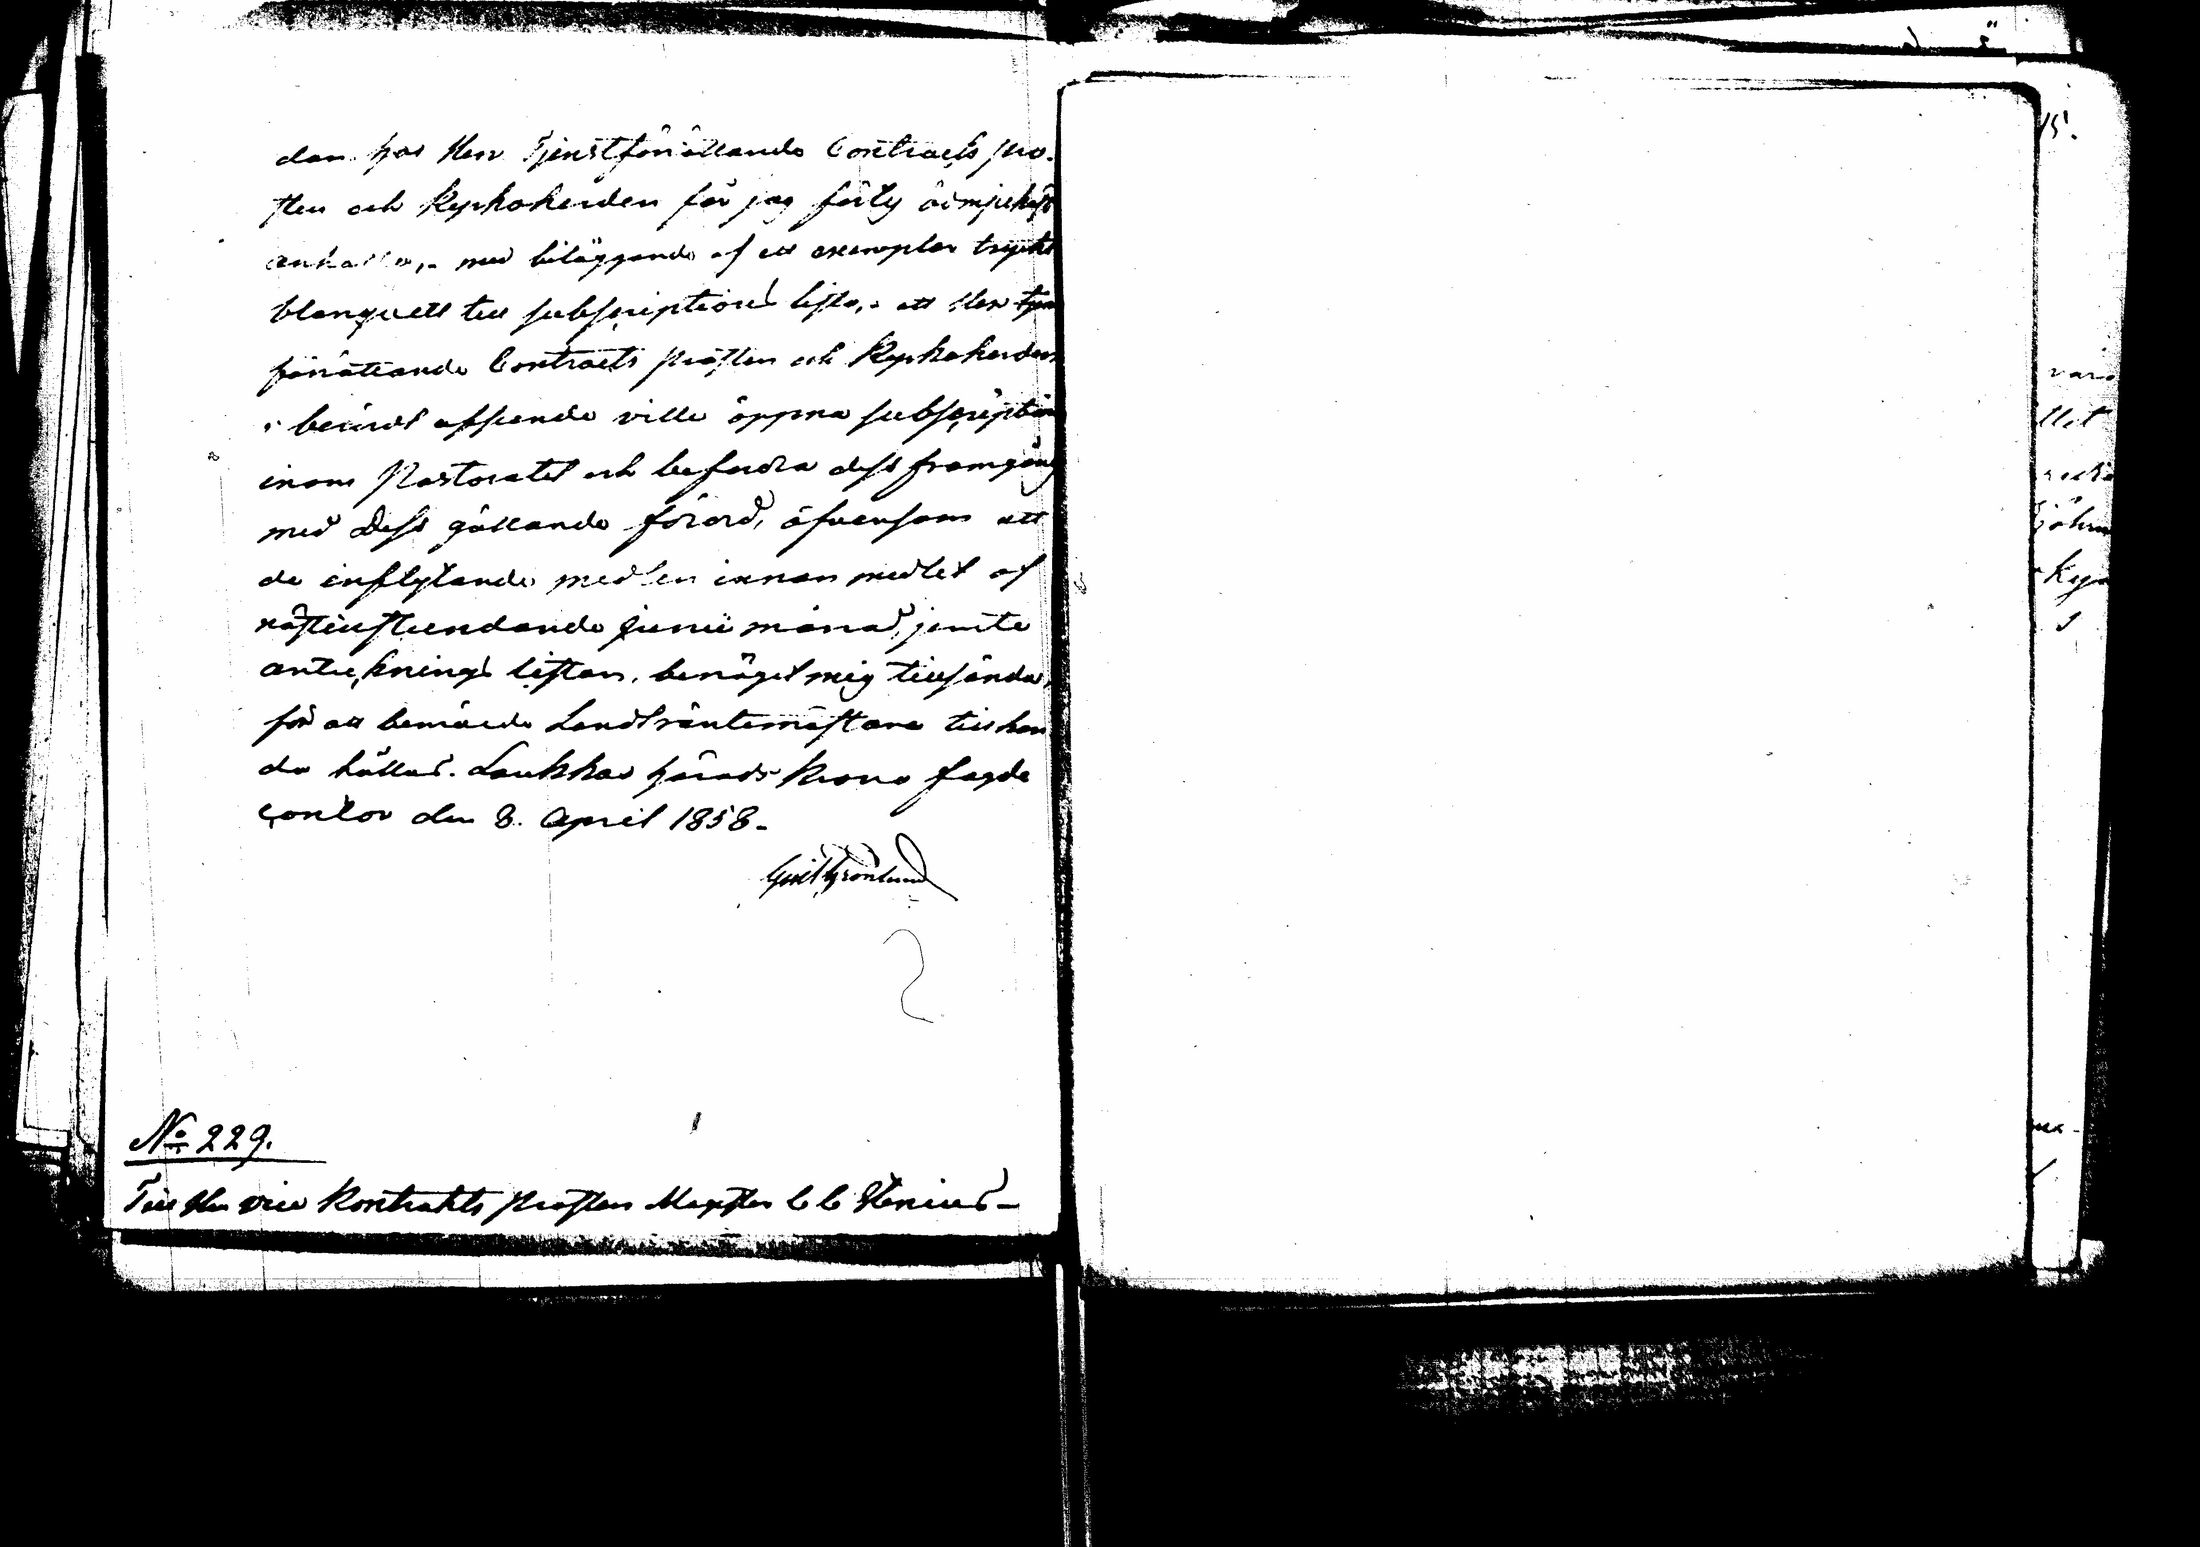 dan hos Herr Tjenstförrättande Contracts pro-
sten och Kyrkoherden får jag förty ödmjukast
anhålla,- med biläggande af ett exemplar tryckt
blanquett till subscriptions lista,- att Herr
förrättande Contracts prosten och Kyrkoherden
i berörde afseende ville öppna subscription
inom Pastoratet och befordra dess framgång
med Dess gällande förord, äfvensom att
de inflytande medlen innan medlet af
nästinstundande Junii månad, jemte
anteknings listan, benäget mig tillsända,
för att bemälde Landträntemästare tillhan
da hållas. Laukkas härads Krono fogde
contor den 8. April 1858.-
Grönlund
No 229.
Till Herr vice Kontrakts prosten Magister